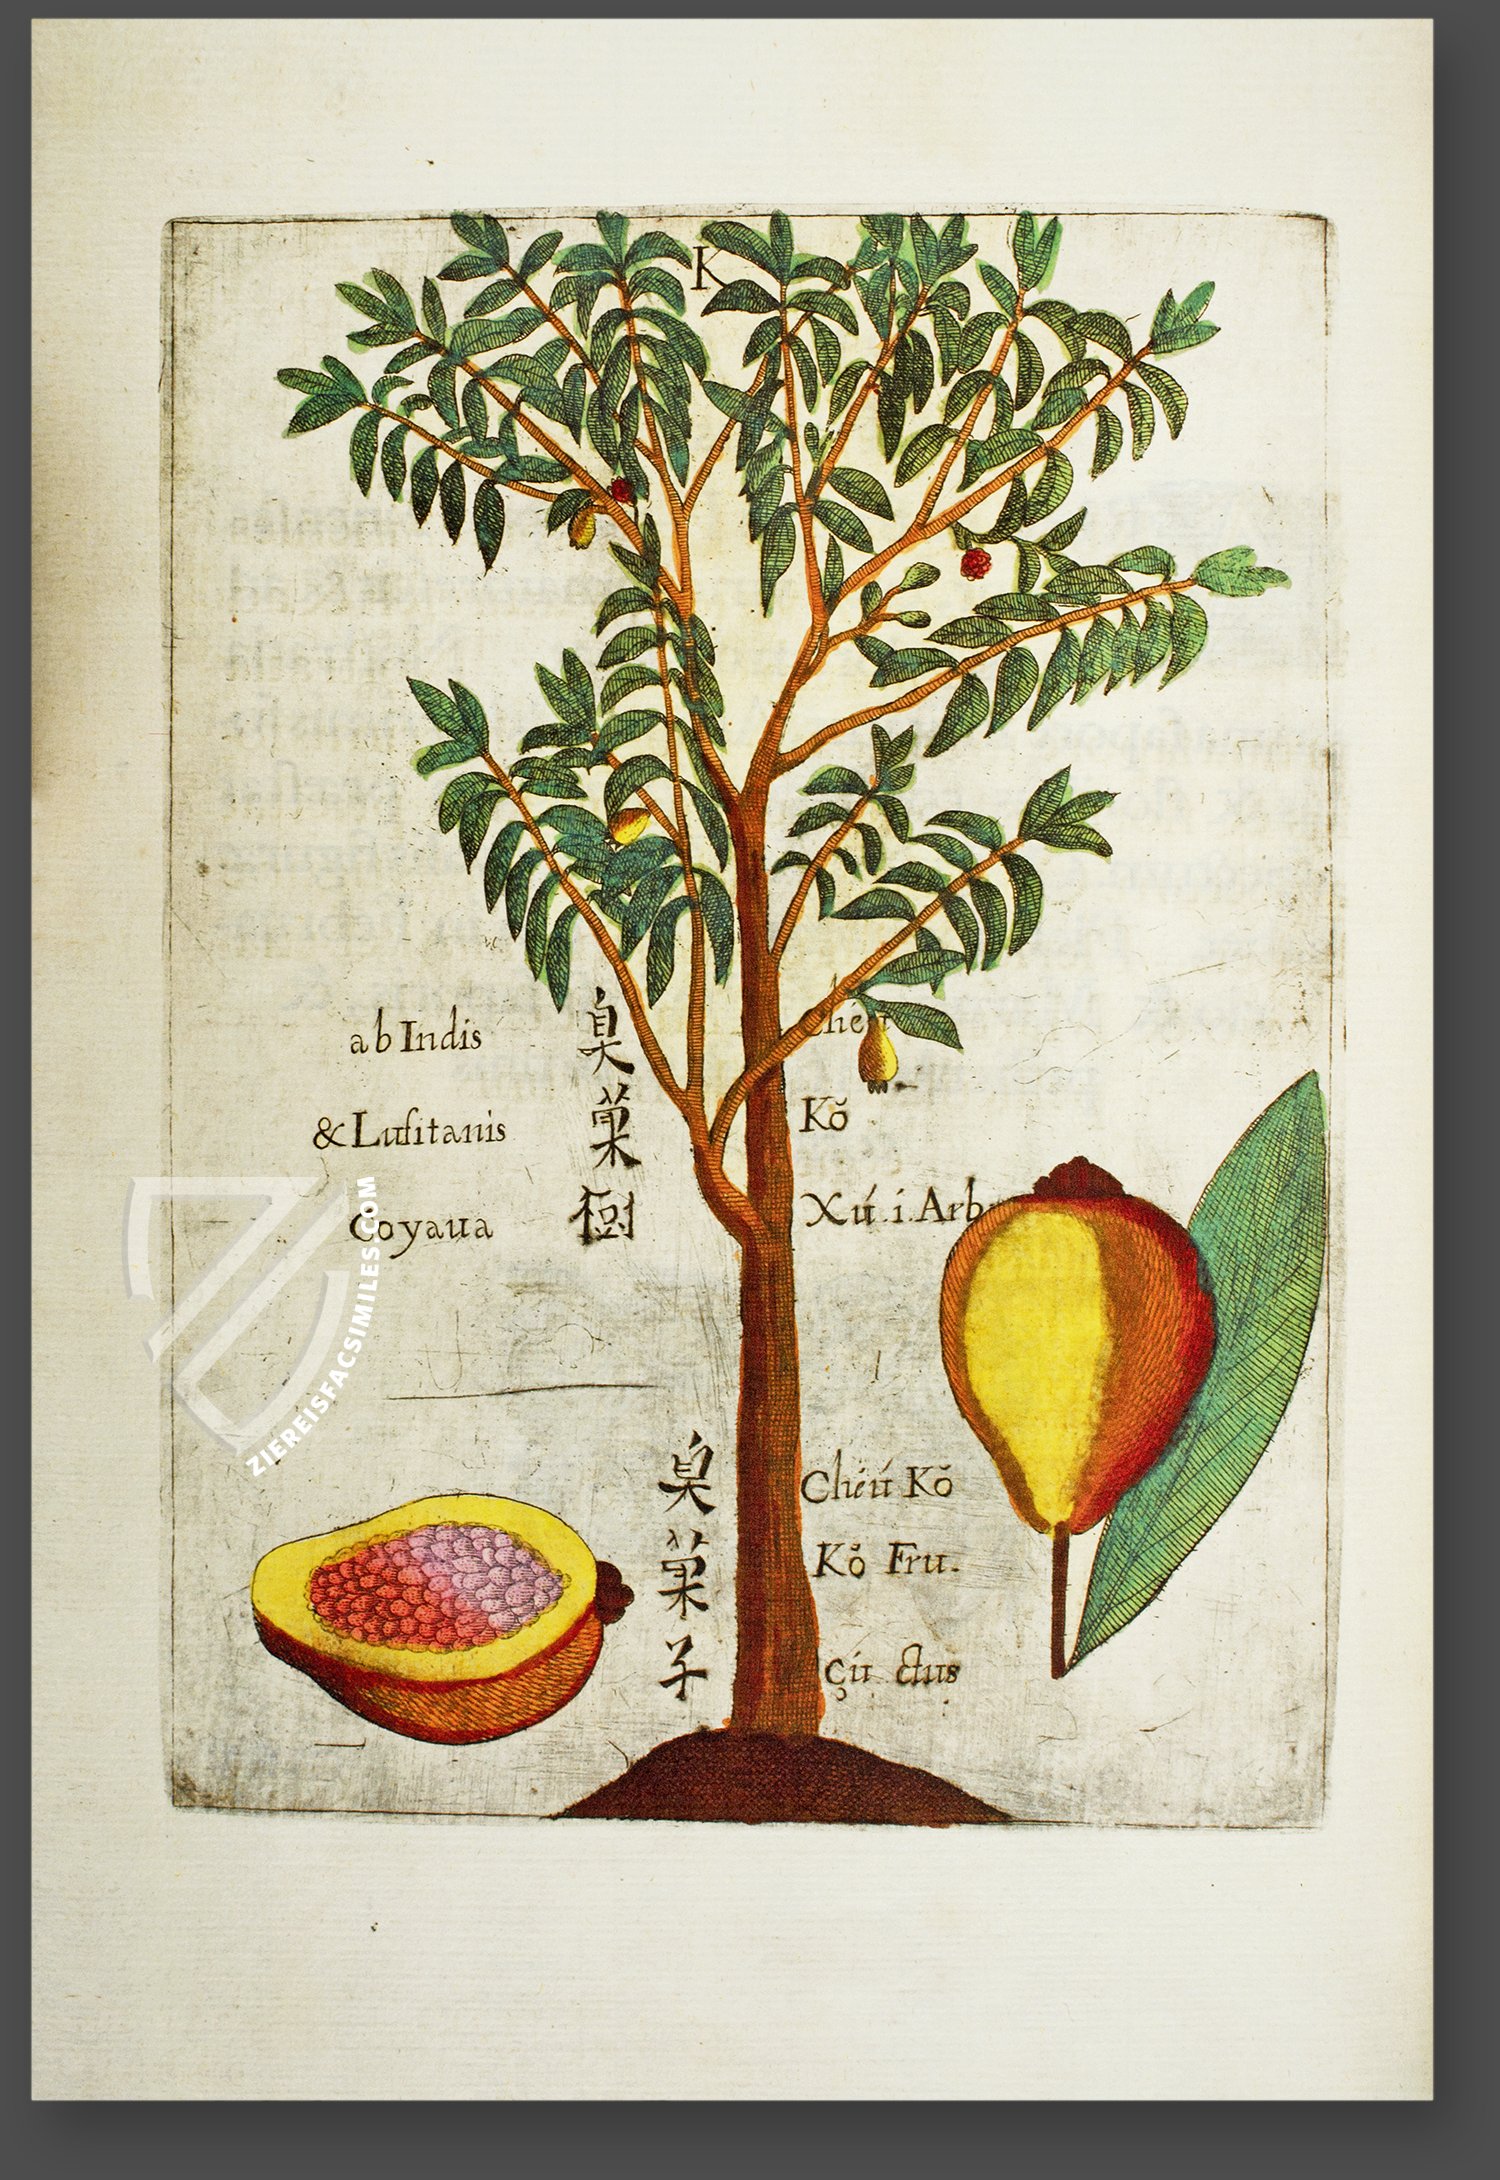 K
ab Indis
& Lusitanis
Coyaua
臭
菓
樹
Chéu
Kŏ
Xú. i. Arb
臭
菓
子
Chéú Kŏ
Kŏ Fru-
çú ctus
ZIEREISFACSIMILES.COM